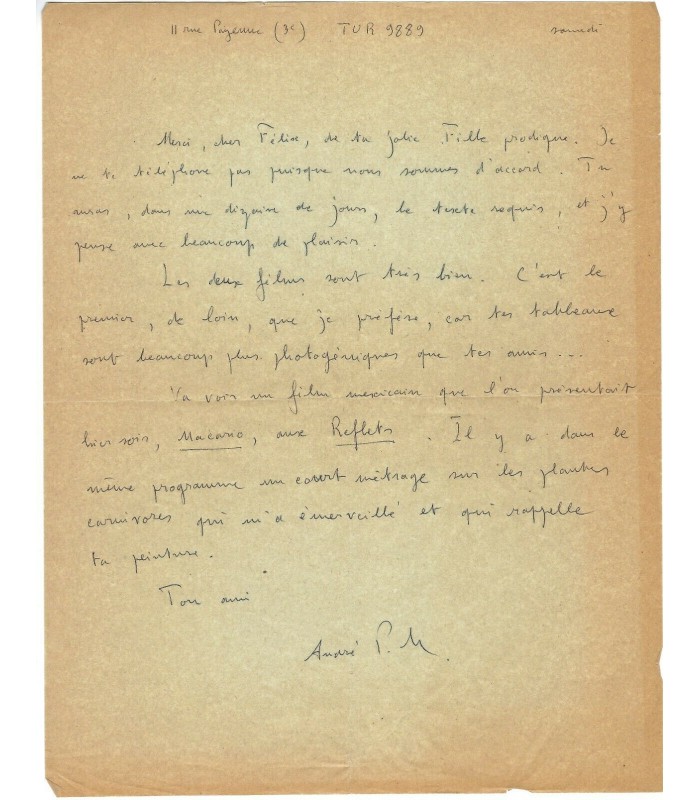 11 rue Payenne (3e) TUR 9889 samedi
Merci, cher Félix, de ta jolie Fille prodigue. Je
ne te téléphone pas puisque nous sommes d'accord. Tu
auras, dans une dizaine de jours, le texte requis, et j'y
pense avec beaucoup de plaisir.
Les deux films sont très bien. C'est le
premier, de loin, que je préfère, car tes tableaux
sont beaucoup plus photogéniques que tes amis...
Va voir un film mexicain que l'on présentait
hier soir, Macario, aux Reflets. Il y a dans le
même programme un court métrage sur les plantes
carnivores qui m'a émerveillé et qui rappelle
ta peinture.
Ton ami
André P. M.